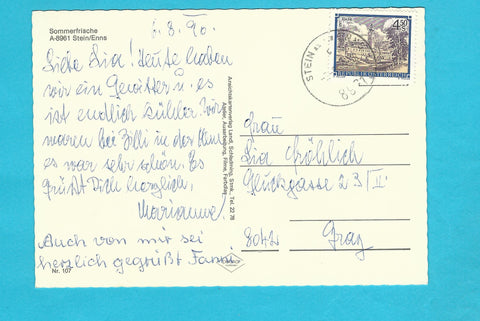 Sommerfrische
A-8961 Stein/Enns
6.8.90.
Liebe Lia! Heute haben
wir ein Gewitter u. es
ist endlich kühler. Wir
waren bei Zilli in der
es war sehr schön. Es
grüßt Dich herzlich,
Marianne
Auch von mir sei
herzlich gegrüßt Fanni.
Nr. 107
Ansichtskartenverlag Landl, Schladming, Stmk., Tel. 22 78
STEIN
4.50
REPUBLIK ÖSTERREICH
Frau
Lia Fröhlich
Glückgasse 23/II
8042 Graz